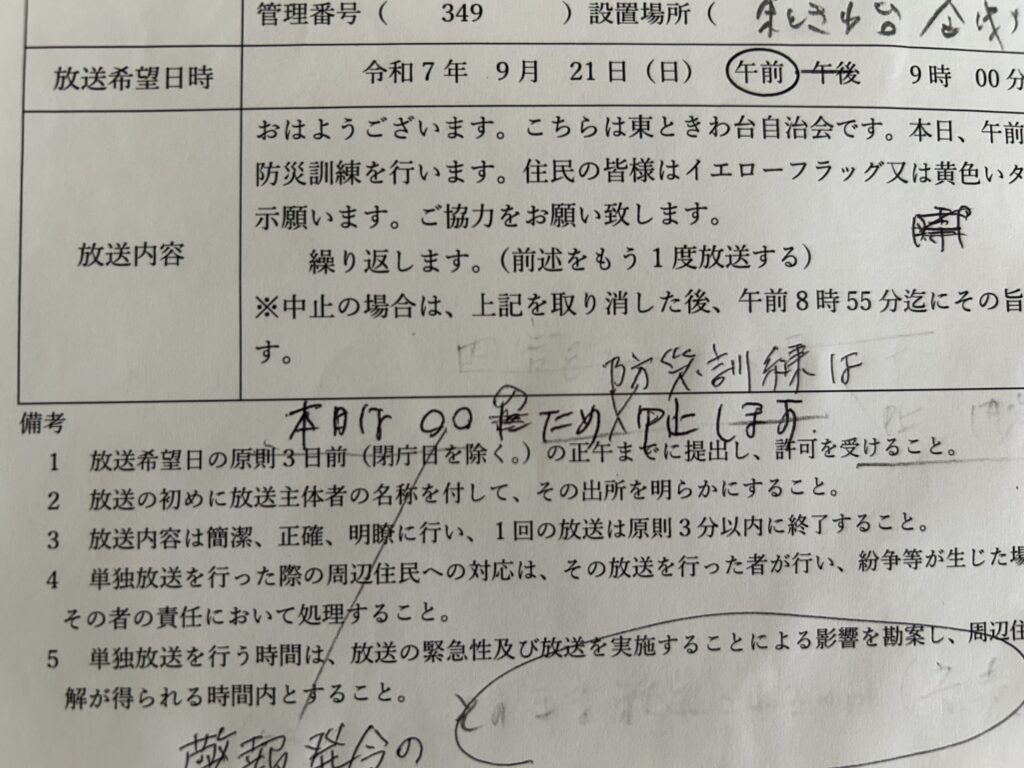 管理番号（　349　）設置場所（　東ときわ台
放送希望日時
令和７年　９月　21日（日）　午前　午後　９時　00分
放送内容
おはようございます。こちらは東ときわ台自治会です。本日、午前
防災訓練を行います。住民の皆様はイエローフラッグ又は黄色いタ
示願います。ご協力をお願い致します。
繰り返します。（前述をもう１度放送する）
※中止の場合は、上記を取り消した後、午前８時55分迄にその旨
す。
防災訓練は
本日は○○のため中止します.
備考
1　放送希望日の原則３日前（閉庁日を除く。）の正午までに提出し、許可を受けること。
2　放送の初めに放送主体者の名称を付して、その出所を明らかにすること。
3　放送内容は簡潔、正確、明瞭に行い、１回の放送は原則３分以内に終了すること。
4　単独放送を行った際の周辺住民への対応は、その放送を行った者が行い、紛争等が生じた場
その者の責任において処理すること。
5　単独放送を行う時間は、放送の緊急性及び放送を実施することによる影響を勘案し、周辺住
解が得られる時間内とすること。
警報発令の